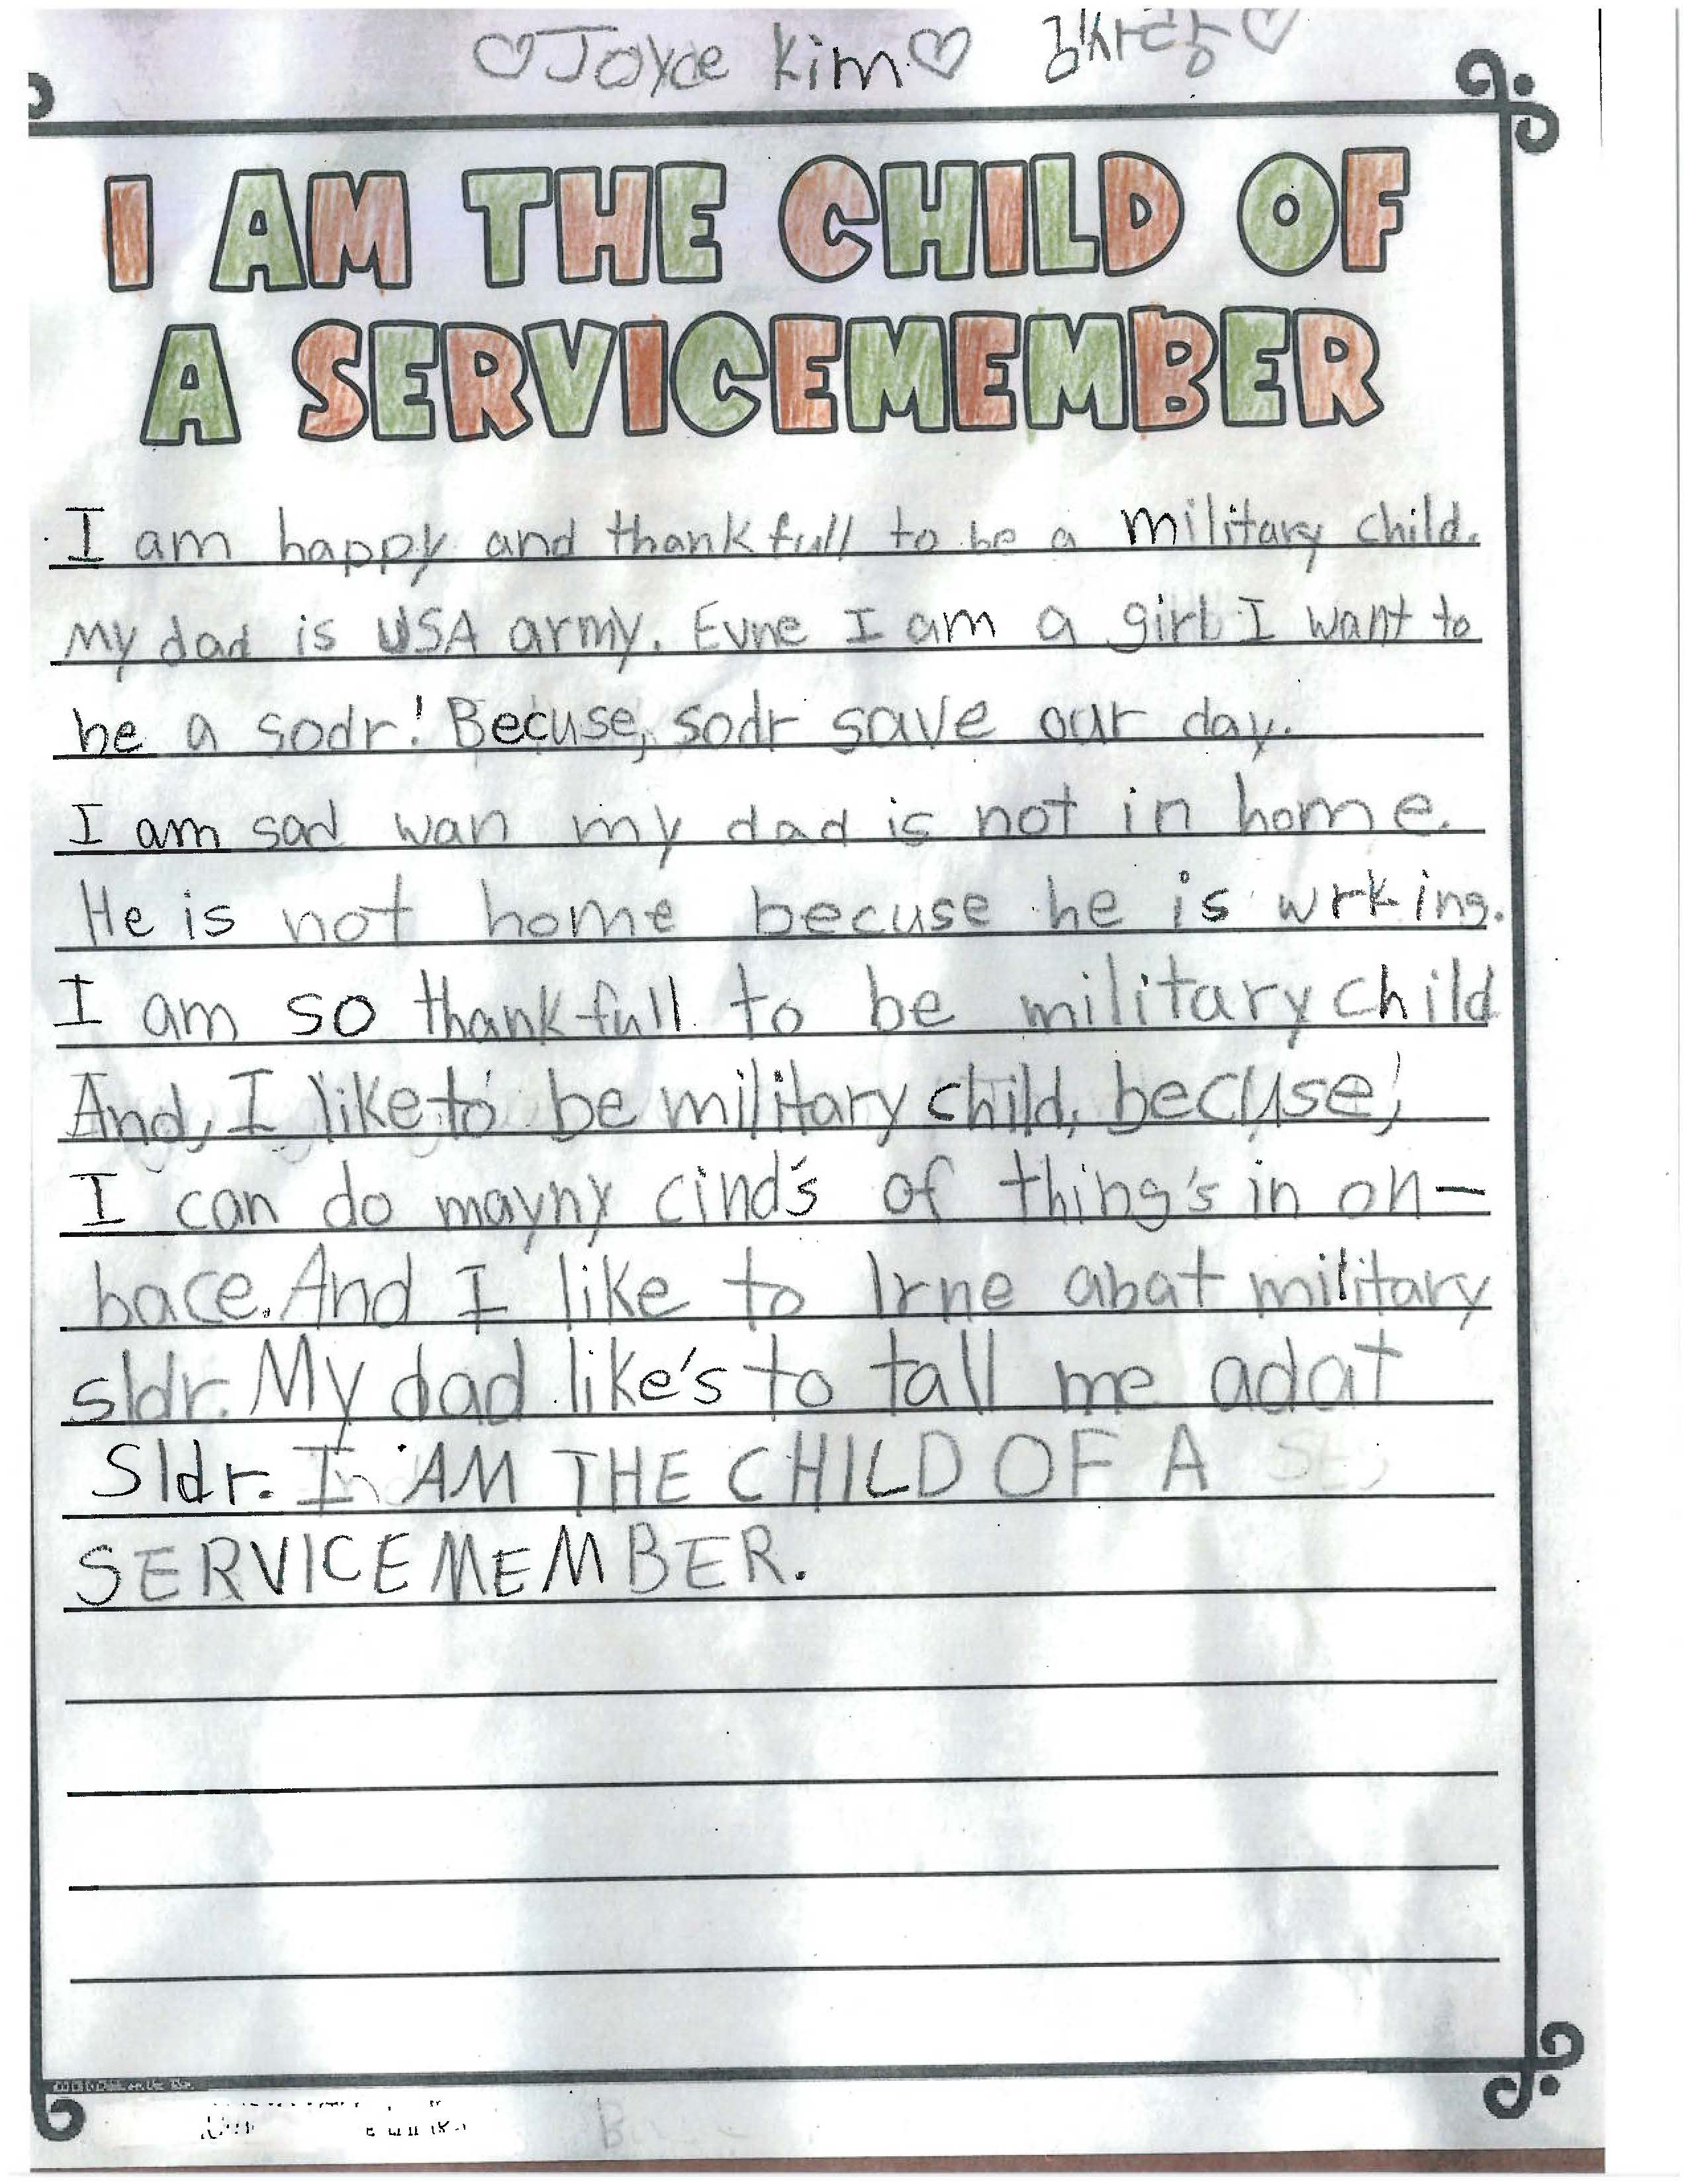 ♡Joyce Kim♡ 김사랑♡
I AM THE CHILD OF
A SERVICEMEMBER
I am happy and thankfull to be a military child.
My dad is USA army. Evne I am a girl I want to
be a sodr! Becuse, sodr save our day.
I am sad wan my dad is not in home.
He is not home becuse he is wrking.
I am so thankfull to be military child
And, I like to be military child, becuse,
I can do mayny cind's of thing's in on-
bace. And I like to lrne abat military
sldr. My dad like's to tall me adat
Sldr. I AM THE CHILD OF A
SERVICEMEMBER.